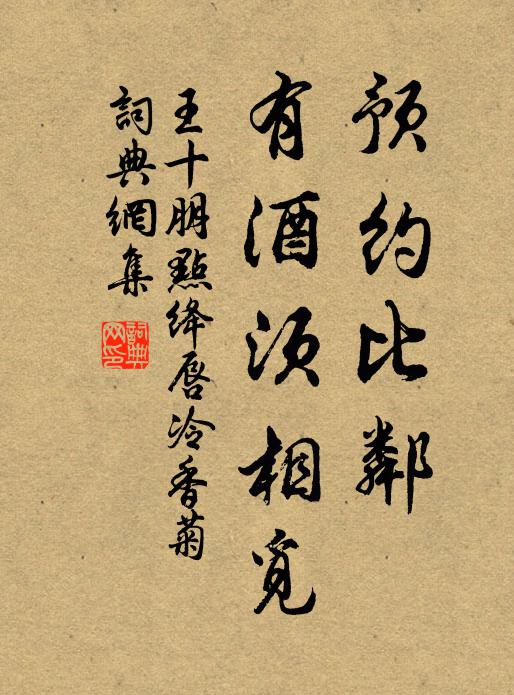 預約比鄰
有酒須相覓
王十朋點絳唇冷香菊
詞典網集
詞典网印